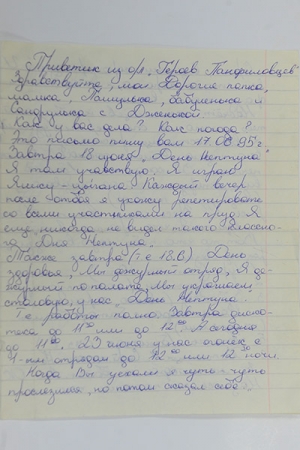 Приветик из о/л „Героев Панфиловцев"
Здравствуйте, мои дорогие папка,
мамка, бабуленька и
с Дженокой
Как у вас дела? Как погода?
Это письмо пишу вам 17.06.95г.
Завтра 18 июня „День Нептуна"
Я там участвую. Я играю
Алису - цыгана. Каждый вечер
после отбоя я ухожу репетировать
со всеми участниками на пруд. Я
ещё никогда не видел такого классно-
го Дня Нептуна.
Также завтра (т.е 18.6) День
здоровья, Мы дежурный отряд, Я де-
журный по палате. Мы украшаем
столовую, у нас „День Нептуна".
Т.е. работы полно. Завтра диско-
тека до 11⁰⁰ или до 12⁰⁰. А сегодня
до 11⁰⁰. 23 июня у нас огонёк с
4-ым отрядом до 12⁰⁰ или 12³⁰ ночи.
Когда Вы уехали я чуть-чуть
прослезился, но потом сказал себе: